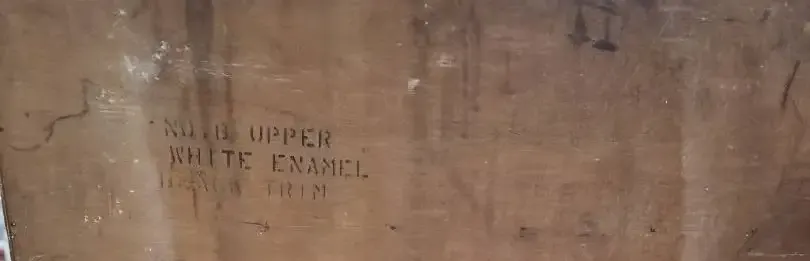 NO. B UPPER
WHITE ENAMEL
BLACK TRIM